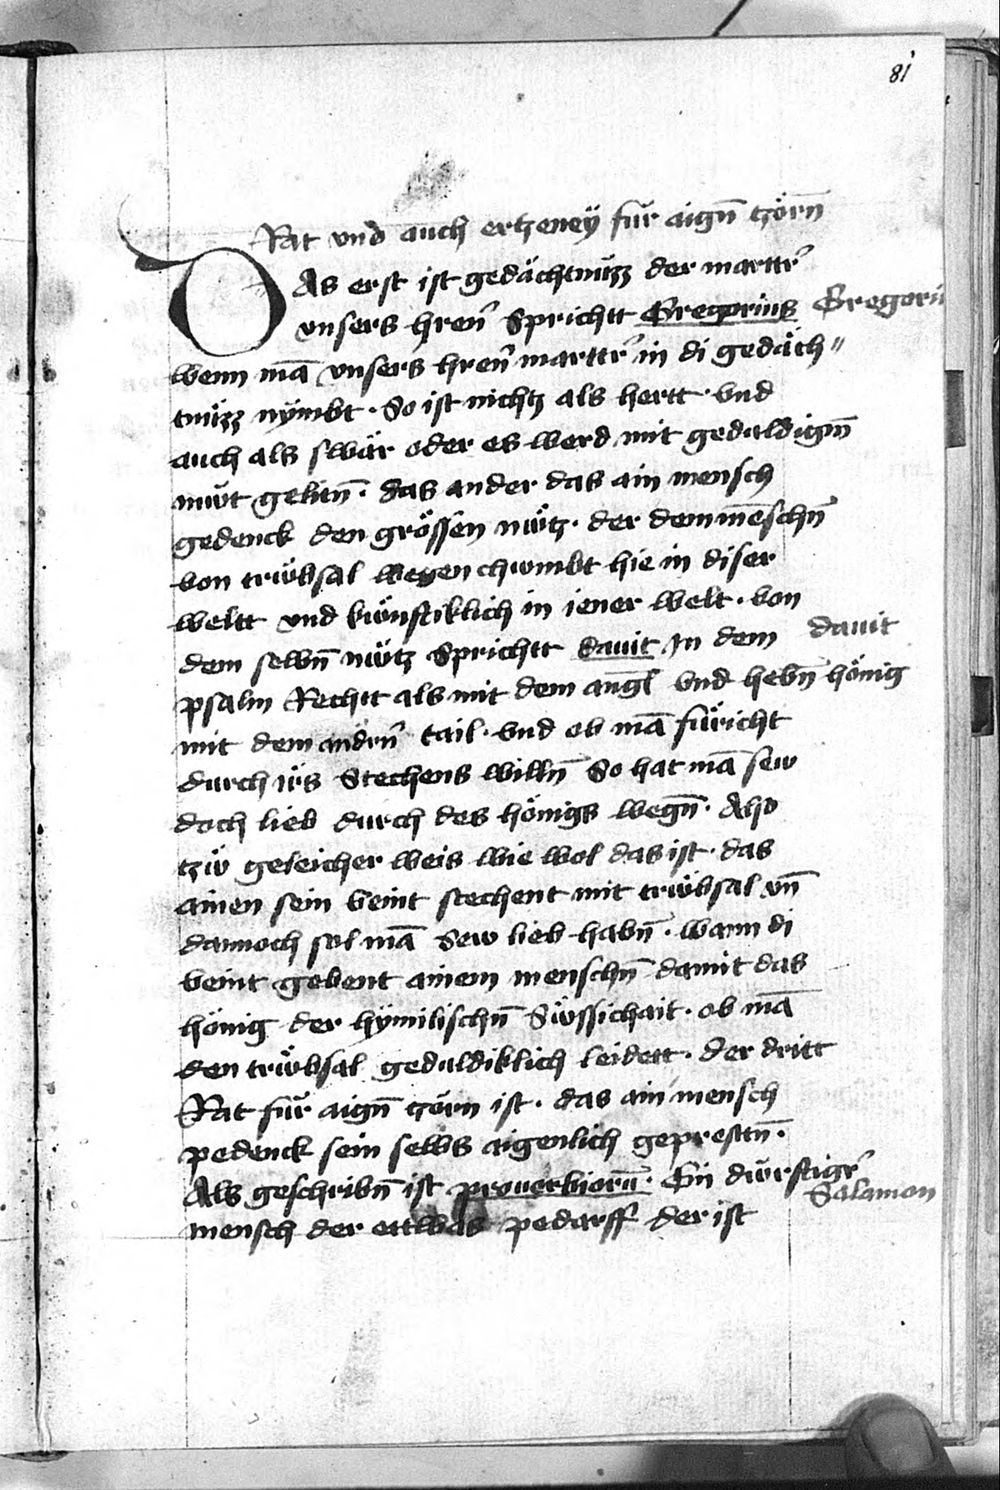 81
Rat vnd auch ertzeneÿ fur aigñ tzörñ
DAs erst ist gedächtnüzz der marttr̄
vnsers hren̄ Sprichtt Gregorius Gregori
wenn mā vnsers hren̄ marttr̄ in di gedäch〃
tnüzz nÿmbt · So ist nichtz als hertt · vnd
auch als swär oder es werd mit geduldigm̄
muͤt geliten̄ · das ander das ain mensch
gedenck den grössen nuͤtz · der dem menschn̄
von truͤbsal wegen chumbt hie in diser
weltt vnd kuͤnftiklich in iener welt · von
dem selbn̄ nuͤtz Sprichtt dauit In dem dauit
psalm Rechtt als mit dem angl vnd hebn̄ hönig
mit dem andrn̄ tail · vnd ob mā füricht
durch irs Stechens willn̄ So hat mā sew
doch lieb durch des hönigs wegn̄ · Also
tzuͤ geleicher weis wie wol das ist · das
ainen sein veint stechent mit truͤbsal vn̄
dannoch sol mā Sew lieb habn̄ · wann di
veint gebent ainem menschn̄ damit das
hönig der hÿmilischn̄ Suͤssichait · ob mā
den truͤbsal geduldiklich leidett · der dritt
Rat für aign̄ tzörn ist · das ain mensch
pedenck sein selbs aigenlich geprestn̄ ·
Als geschribn̄ ist prouerbiorū · Ein duͤrftigr̄
Salamon
mensch der ettwas pedarff der ist